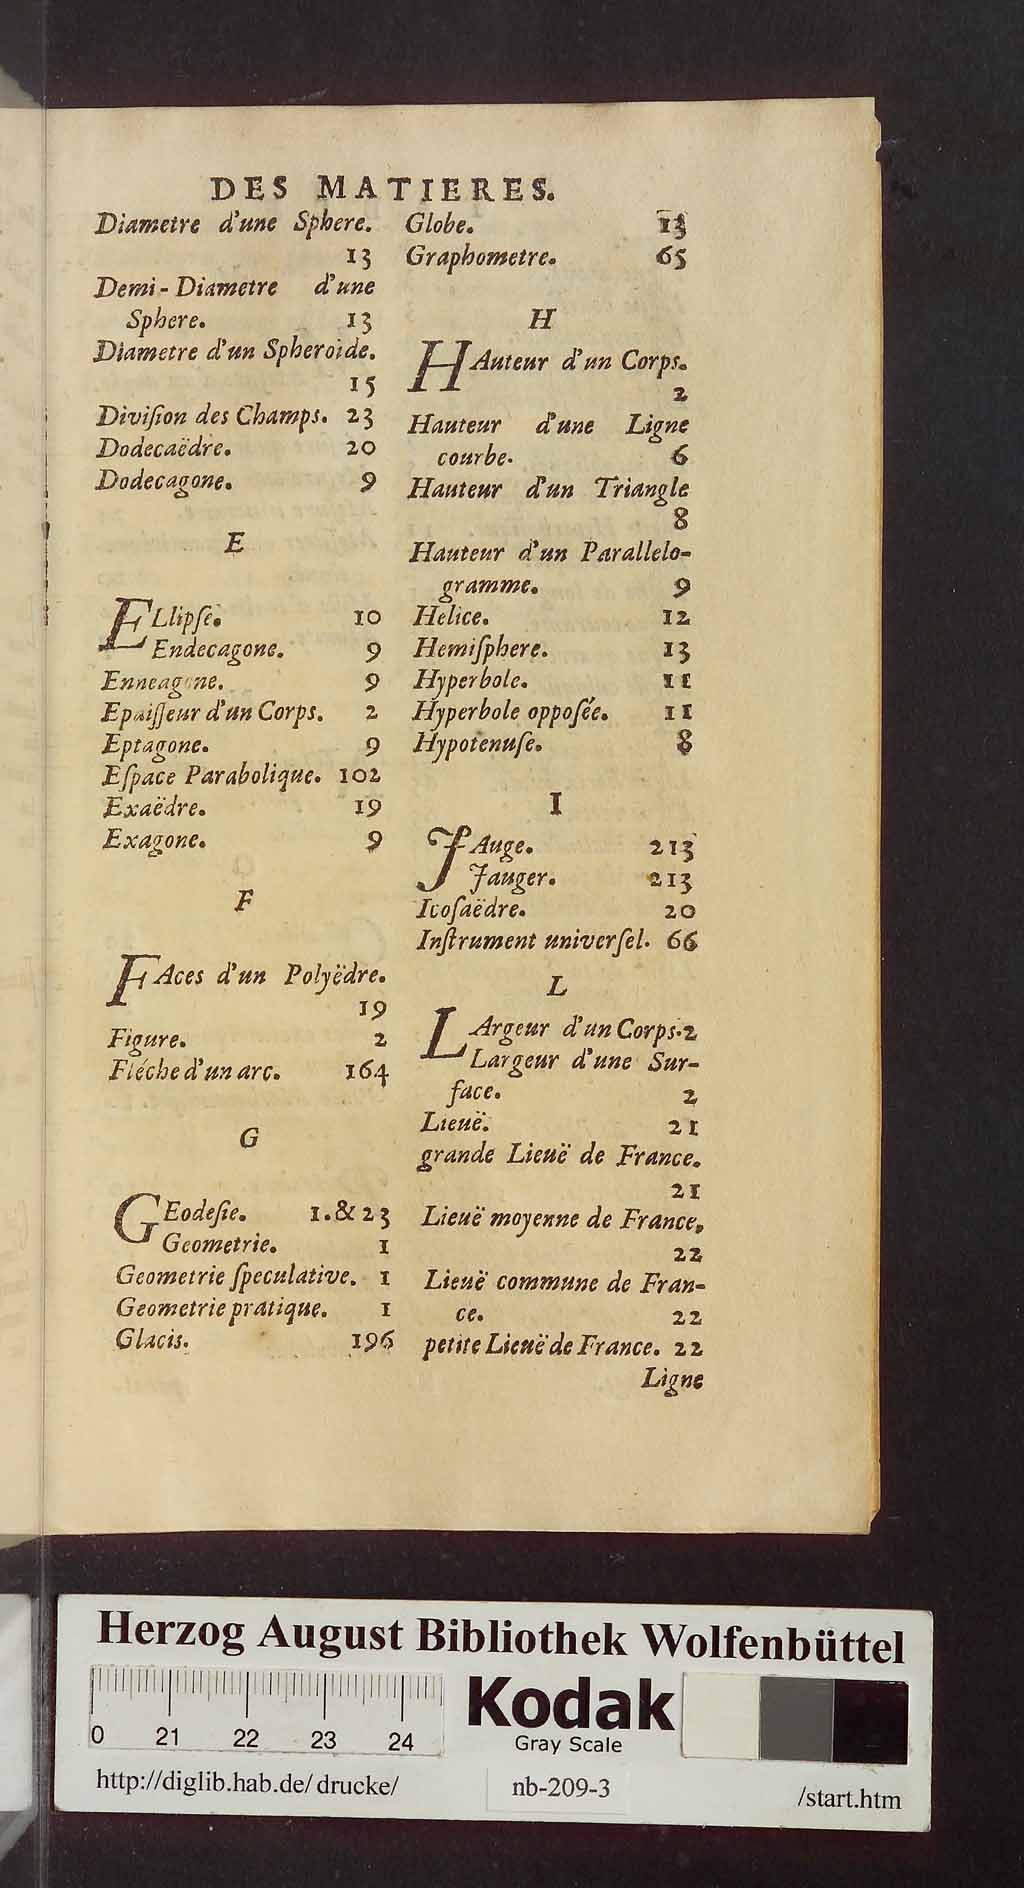 DES MATIERES.
Diametre d'une Sphere.
13
Demi-Diametre d'une
Sphere. 13
Diametre d'un Spheroide.
15
Diviſion des Champs. 23
Dodecaëdre. 20
Dodecagone. 9
E
ELlipſe. 10
Endecagone. 9
Enneagone. 9
Epaiſſeur d'un Corps. 2
Eptagone. 9
Eſpace Parabolique. 102
Exaëdre. 19
Exagone. 9
F
FAces d'un Polyëdre.
19
Figure. 2
Fléche d'un arc. 164
G
GEodeſie. 1.&23
Geometrie. 1
Geometrie ſpeculative. 1
Geometrie pratique. 1
Glacis. 196
Globe. 13
Graphometre. 65
H
HAuteur d'un Corps.
2
Hauteur d'une Ligne
courbe. 6
Hauteur d'un Triangle
8
Hauteur d'un Parallelo-
gramme. 9
Helice. 12
Hemiſphere. 13
Hyperbole. 11
Hyperbole oppoſée. 11
Hypotenuſe. 8
I
JAuge. 213
Jauger. 213
Icoſaëdre. 20
Inſtrument univerſel. 66
L
LArgeur d'un Corps.2
Largeur d'une Sur-
face. 2
Lieuë. 21
grande Lieuë de France.
21
Lieuë moyenne de France,
22
Lieuë commune de Fran-
ce. 22
petite Lieuë de France. 22
Ligne
Herzog August Bibliothek Wolfenbüttel
0 21 22 23 24
Kodak
Gray Scale
http://diglib.hab.de/drucke/ nb-209-3 /start.htm